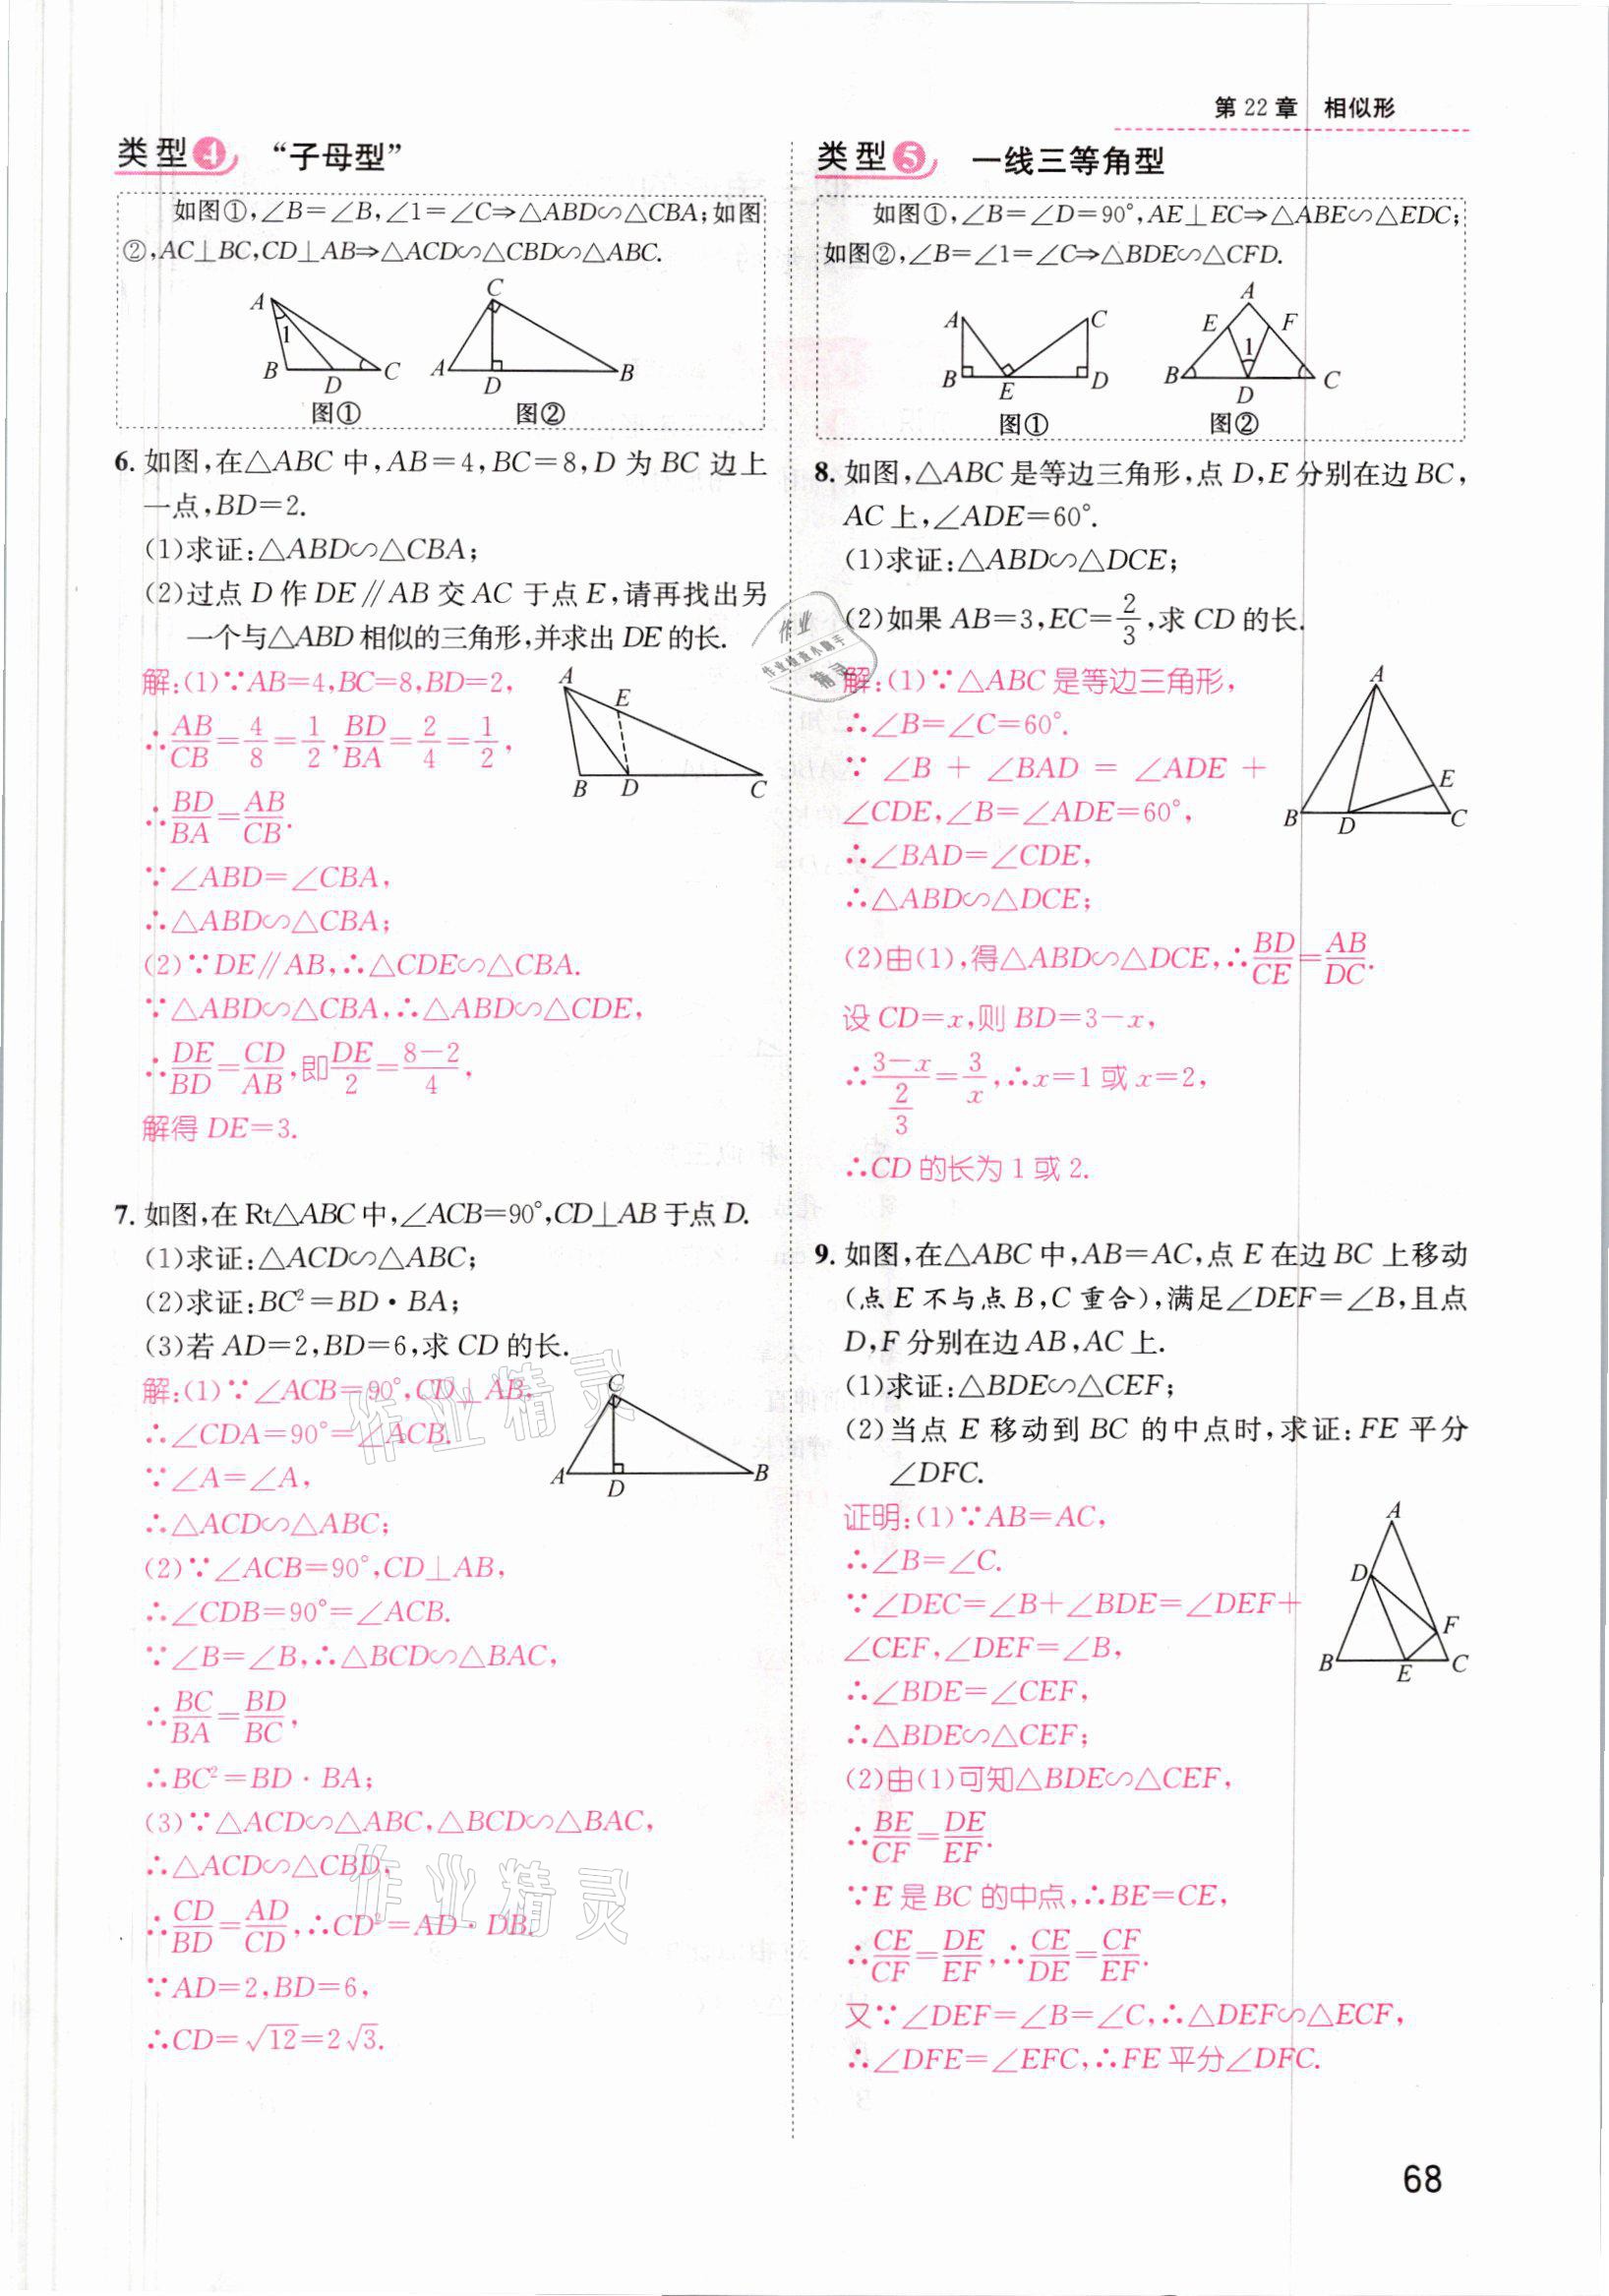 第22章 相似形
类型4 “子母型”
如图①,∠B=∠B,∠1=∠C⇒△ABD∽△CBA;如图
②,AC⊥BC,CD⊥AB⇒△ACD∽△CBD∽△ABC.
A 1 B D C
C A D B
图① 图②
6. 如图,在△ABC中,AB=4,BC=8,D为BC边上
一点,BD=2.
(1)求证:△ABD∽△CBA;
(2)过点D作DE∥AB交AC于点E,请再找出另
一个与△ABD相似的三角形,并求出DE的长.
解:(1)∵AB=4,BC=8,BD=2,
∴AB/CB=4/8=1/2,BD/BA=2/4=1/2,
∴BD/BA=AB/CB.
∵∠ABD=∠CBA,
∴△ABD∽△CBA;
(2)∵DE∥AB,∴△CDE∽△CBA.
∵△ABD∽△CBA,∴△ABD∽△CDE,
∴DE/BD=CD/AB,即DE/2=(8-2)/4,
解得DE=3.
A E B D C
7. 如图,在Rt△ABC中,∠ACB=90°,CD⊥AB于点D.
(1)求证:△ACD∽△ABC;
(2)求证:BC²=BD·BA;
(3)若AD=2,BD=6,求CD的长.
解:(1)∵∠ACB=90°,CD⊥AB,
∴∠CDA=90°=∠ACB.
∵∠A=∠A,
∴△ACD∽△ABC;
(2)∵∠ACB=90°,CD⊥AB,
∴∠CDB=90°=∠ACB.
∵∠B=∠B,∴△BCD∽△BAC,
∴BC/BA=BD/BC,
∴BC²=BD·BA;
(3)∵△ACD∽△ABC,△BCD∽△BAC,
∴△ACD∽△CBD,
∴CD/BD=AD/CD,∴CD²=AD·DB.
∵AD=2,BD=6,
∴CD=√12=2√3.
C A D B
作业精灵
作业精灵
类型5 一线三等角型
如图①,∠B=∠D=90°,AE⊥EC⇒△ABE∽△EDC;
如图②,∠B=∠1=∠C⇒△BDE∽△CFD.
A C B E D
A E F 1 B D C
图① 图②
8. 如图,△ABC是等边三角形,点D,E分别在边BC,
AC上,∠ADE=60°.
(1)求证:△ABD∽△DCE;
(2)如果AB=3,EC=2/3,求CD的长.
作业
作业检查小助手
精灵
解:(1)∵△ABC是等边三角形,
∴∠B=∠C=60°.
∵ ∠B + ∠BAD = ∠ADE +
∠CDE,∠B=∠ADE=60°,
∴∠BAD=∠CDE,
∴△ABD∽△DCE;
(2)由(1),得△ABD∽△DCE,∴BD/CE=AB/DC.
设CD=x,则BD=3-x,
∴(3-x)/(2/3)=3/x,∴x=1或x=2,
∴CD的长为1或2.
A E B D C
9. 如图,在△ABC中,AB=AC,点E在边BC上移动
(点E不与点B,C重合),满足∠DEF=∠B,且点
D,F分别在边AB,AC上.
(1)求证:△BDE∽△CEF;
(2)当点E移动到BC的中点时,求证:FE平分
∠DFC.
证明:(1)∵AB=AC,
∴∠B=∠C.
∵∠DEC=∠B+∠BDE=∠DEF+
∠CEF,∠DEF=∠B,
∴∠BDE=∠CEF,
∴△BDE∽△CEF;
(2)由(1)可知△BDE∽△CEF,
∴BE/CF=DE/EF.
∵E是BC的中点,∴BE=CE,
∴CE/CF=DE/EF,∴CE/DE=CF/EF.
又∵∠DEF=∠B=∠C,∴△DEF∽△ECF,
∴∠DFE=∠EFC,∴FE平分∠DFC.
A D F B E C
68